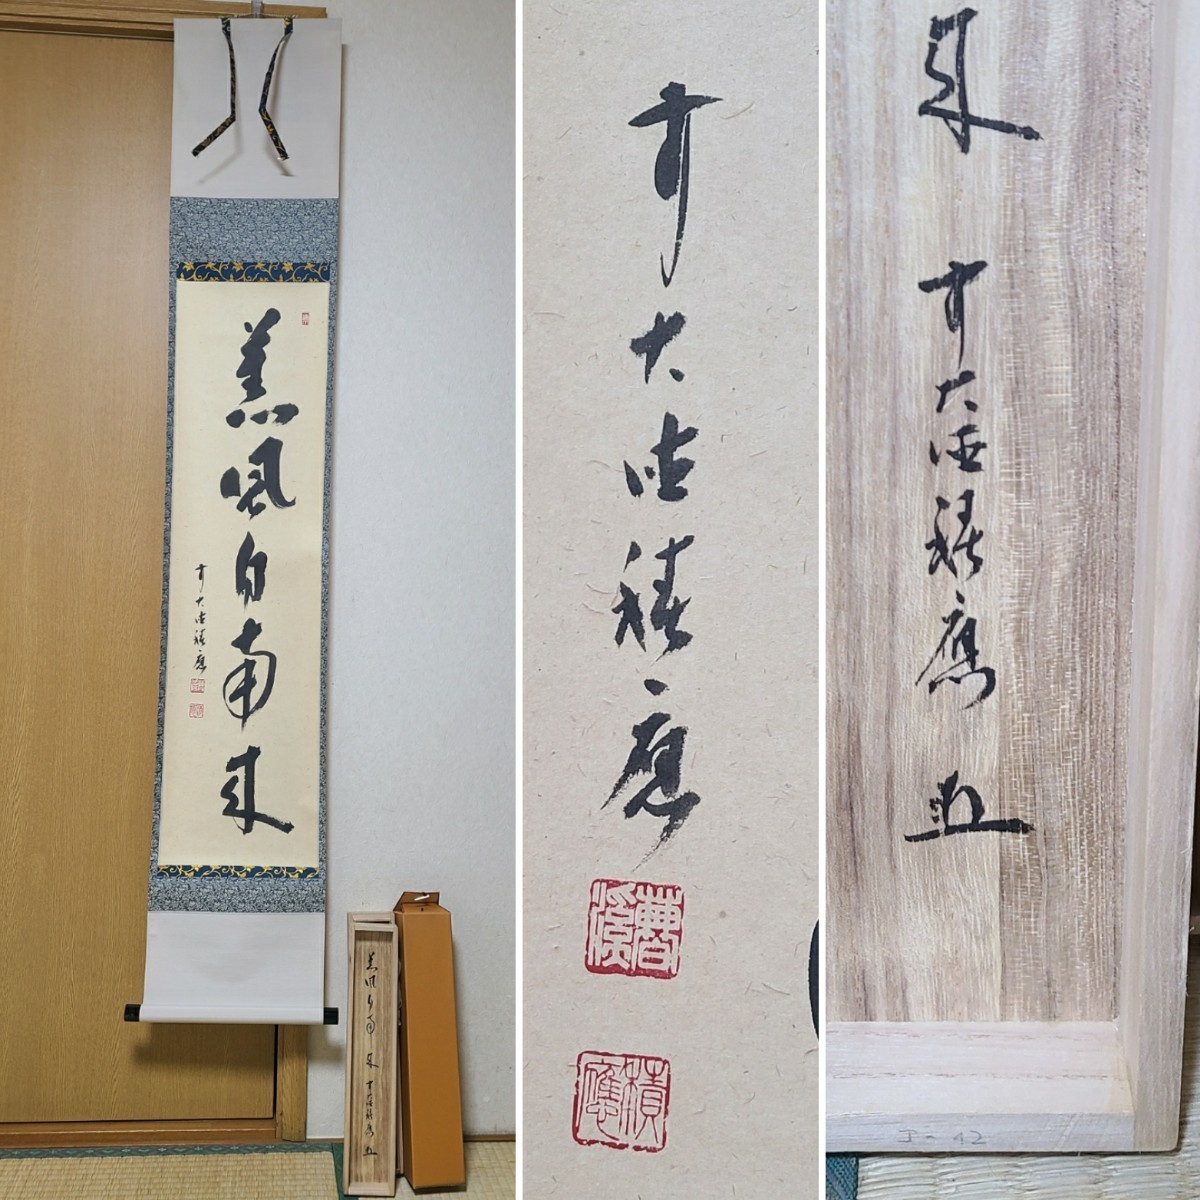 薫風自南来
前大徳積應
積應
薫風自南来 前大徳積應
前大徳積應
来 前大徳積應
J-42